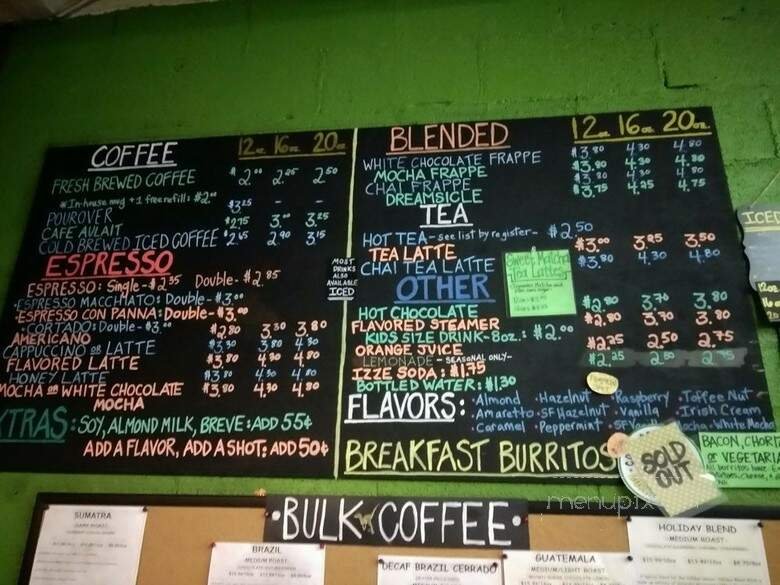 COFFEE 12oz 16oz 20oz
FRESH BREWED COFFEE $2.00 2.25 2.50
*In-house mug + 1 free refill: $2.00
POUROVER $3.25 - -
CAFE AULAIT $2.75 3.00 3.25
COLD BREWED ICED COFFEE $2.65 2.90 3.15
ESPRESSO
ESPRESSO: Single-$2.35 Double-$2.85
ESPRESSO MACCHIATO: Double-$3.00
ESPRESSO CON PANNA: Double-$3.00
CORTADO: Double-$3.00
AMERICANO $2.80 3.30 3.80
CAPPUCCINO OR LATTE $3.30 3.80 4.30
FLAVORED LATTE $3.80 4.30 4.80
HONEY LATTE $3.80 4.30 4.80
MOCHA OR WHITE CHOCOLATE $3.80 4.30 4.80
MOCHA
XTRAS: SOY, ALMOND MILK, BREVE: ADD 55¢
ADD A FLAVOR, ADD A SHOT: ADD 50¢
MOST
DRINKS
ALSO
AVAILABLE
ICED
BLENDED 12oz 16oz 20oz
WHITE CHOCOLATE FRAPPE $3.80 4.30 4.80
MOCHA FRAPPE $3.80 4.30 4.80
CHAI FRAPPE $3.80 4.30 4.80
DREAMSICLE $3.75 4.25 4.75
TEA
HOT TEA-see list by register-$2.50
TEA LATTE $3.00 3.25 3.50
CHAI TEA LATTE $3.80 4.30 4.80
Sweet Matcha
Tea Lattes
OTHER
HOT CHOCOLATE $2.80 3.70 3.80
FLAVORED STEAMER $2.80 3.70 3.80
KIDS SIZE DRINK-8oz.: $2.00
ORANGE JUICE $2.25 2.50 2.75
LEMONADE-SEASONAL ONLY- $2.25 2.50 2.75
IZZE SODA: $1.75
BOTTLED WATER: $1.30
FLAVORS: •Almond •Hazelnut •Raspberry •Toffee Nut
•Amaretto •SF Hazelnut •Vanilla •Irish Cream
•Caramel •Peppermint •SF Vanilla •Mocha •White Mocha
BREAKFAST BURRITOS
SOLD
OUT
BACON,
OR VEGETARIA
ICED
12oz
menupix
•BULK COFFEE•
SUMATRA
DARK ROAST
BRAZIL
MEDIUM ROAST
DECAF BRAZIL CERRADO
GUATEMALA
MEDIUM/LIGHT ROAST
HOLIDAY BLEND
MEDIUM ROAST